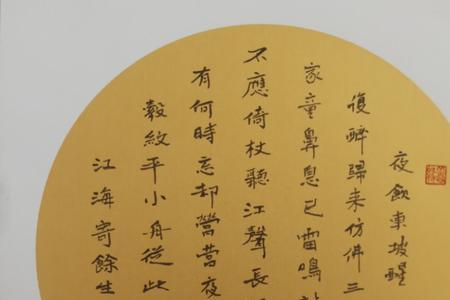 夜飲東坡醒
復醉歸來仿佛三
家童鼻息已雷鳴
不應倚杖聽江聲長
有何時忘却營營夜
縠紋平小舟從此
江海寄餘生